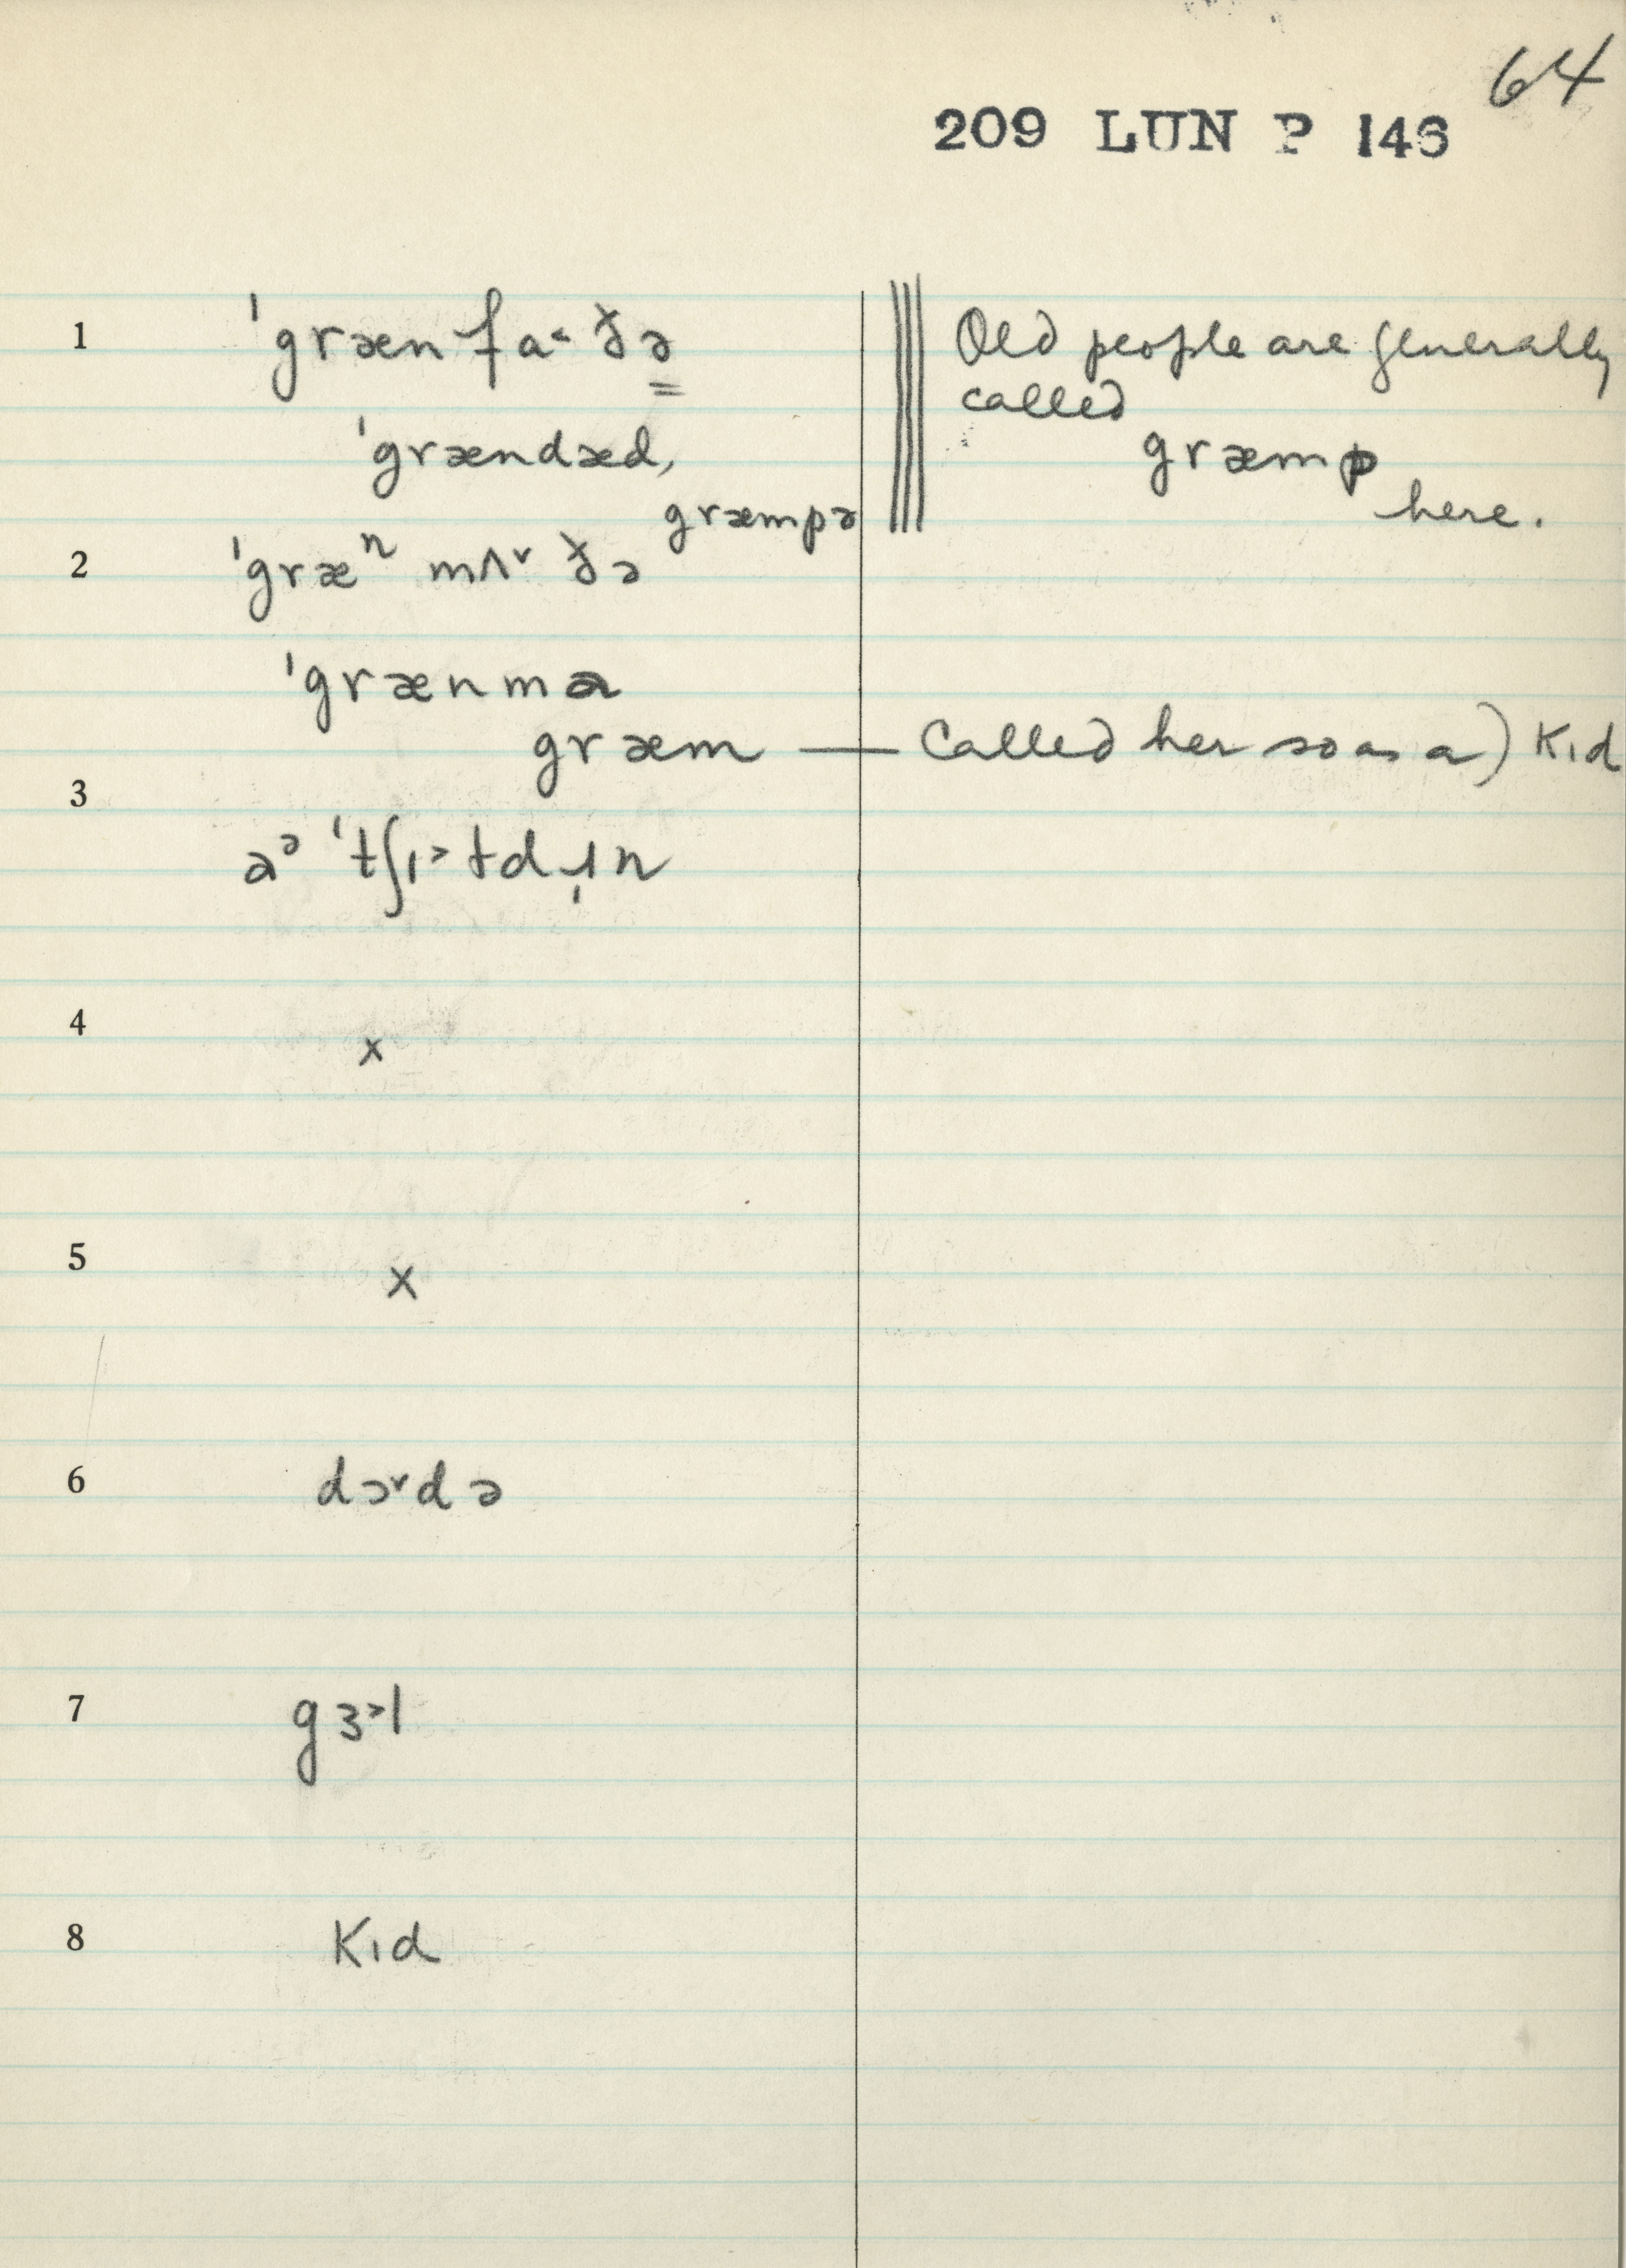 64
209 LUN P 146
1 ˈgrænfa˂ðə Old people are generally
called
ˈgrændæd, græmp
græmpə here.
2 ˈgræⁿ mʌ˅ðə
ˈgrænmə
græm — Called her so as a) Kɪd
3
aᵊ ˈtʃɪ˃ɫdˌɪn
4 x
5 x
6 dɔ˅də
7 gɜ˃l
8 Kɪd